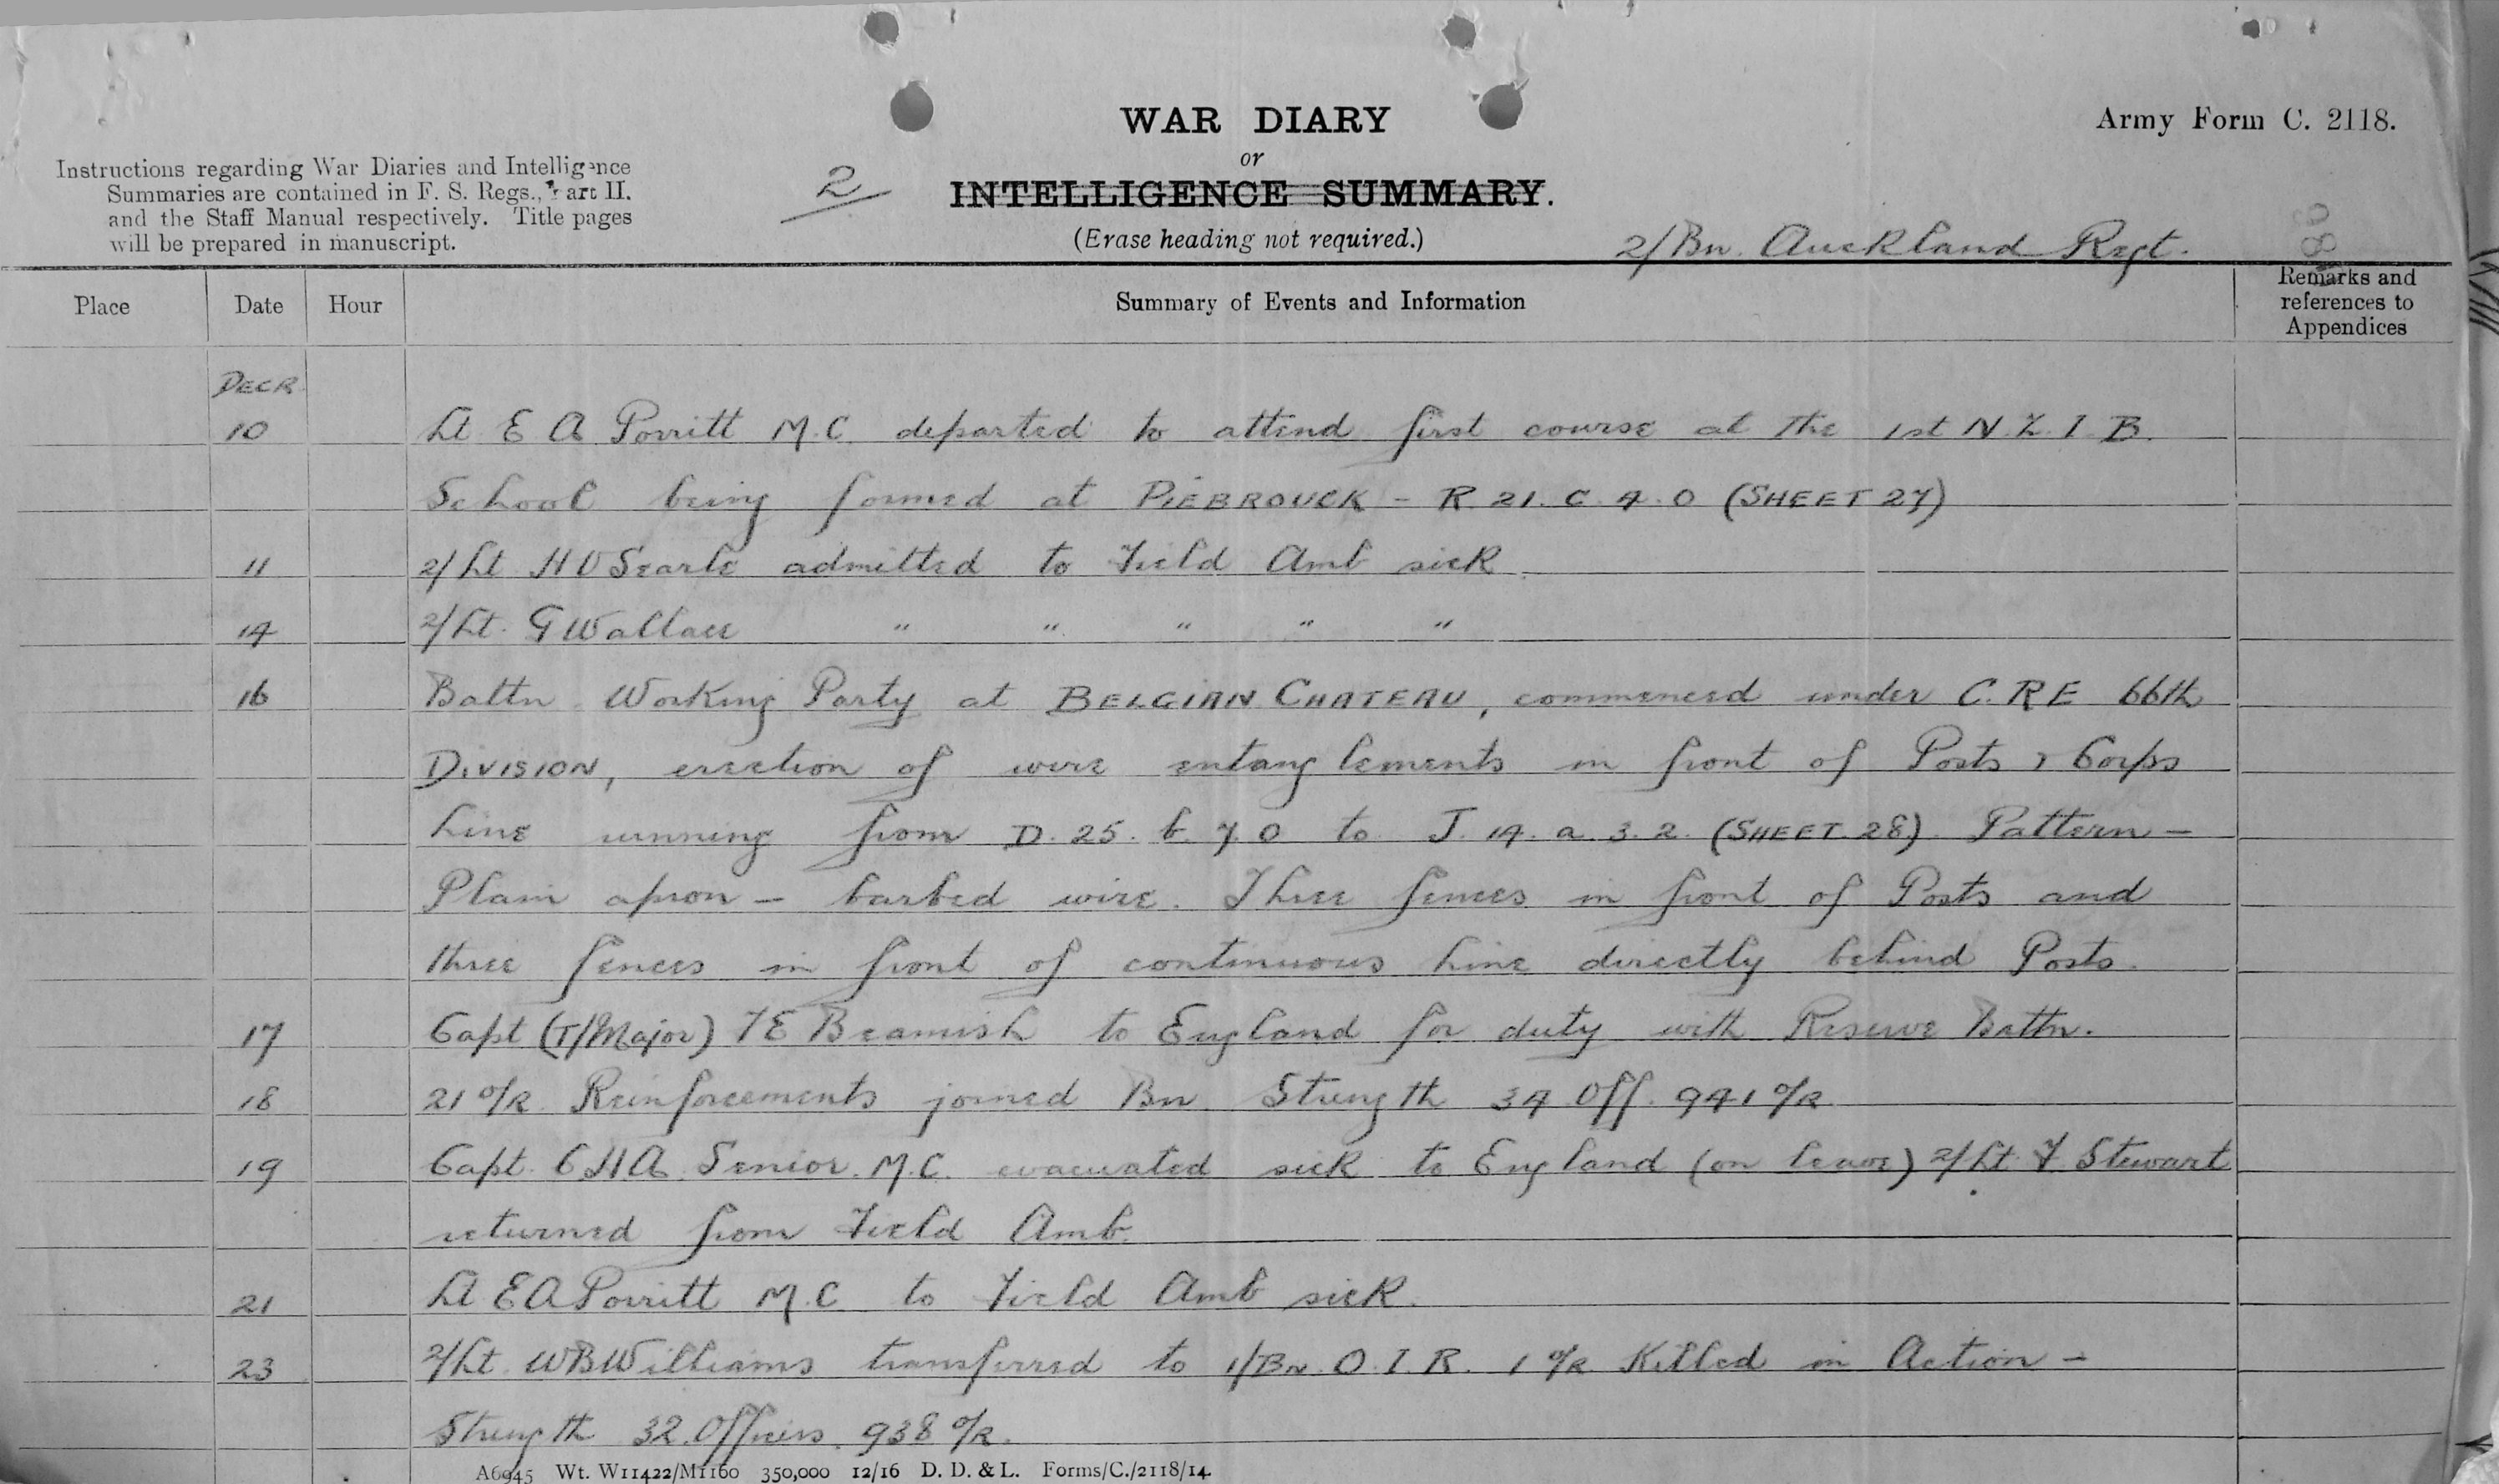 WAR DIARY
or
INTELLIGENCE SUMMARY.
(Erase heading not required.)
Army Form C. 2118.
Instructions regarding War Diaries and Intelligence
Summaries are contained in F. S. Regs., Part II.
and the Staff Manual respectively. Title pages
will be prepared in manuscript.
2
2/Bn. Auckland Regt.
Place Date Hour Summary of Events and Information Remarks and references to Appendices
DECR
10 Lt E A Porritt M.C. departed to attend first course at the 1st N.Z.I.B.
School being formed at PIEBROUCK - R.21.C.4.0 (SHEET 27)
11 2/Lt H V Searle admitted to Field Amb sick
14 2/Lt. G Wallace " " " " "
16 Battn Working Party at BELGIAN CHATEAU, commenced under C.R.E 66th
DIVISION, erection of wire entanglements in front of Posts & Corps
Line running from D.25.b.7.0 to J.14.a.3.2. (SHEET 28). Pattern -
Plain apron - barbed wire. Three fences in front of Posts and
three fences in front of continuous Line directly behind Posts.
17 Capt (T/Major) F E Beamish to England for duty with Reserve Battn.
18 21 O/R Reinforcements joined Bn. Strength 34 Off. 941 O/R.
19 Capt. C H A Senior. M.C. evacuated sick to England (on leave) 2/Lt. F Stewart
returned from Field Amb.
21 Lt E A Porritt M.C to Field Amb sick.
23 2/Lt W B Williams transferred to 1/Bn. O.I.R. 1 O/R Killed in Action -
Strength 32 Officers. 938 O/R.
A6945 Wt. W11422/M1160 350,000 12/16 D. D. & L. Forms/C./2118/14.